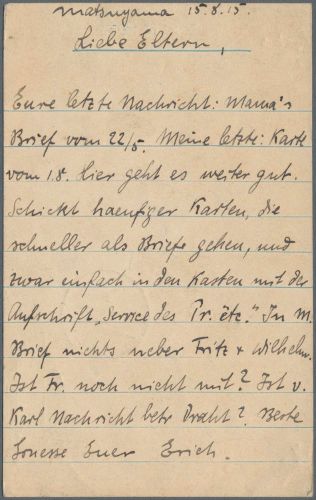 Matsuyama 15.8.15.
Liebe Eltern,
Eure letzte Nachricht: Mama's
Brief vom 22/5. Meine letzte: Karte
vom 1.8. Hier geht es weiter gut.
Schickt haeufiger Karten, die
schneller als Briefe gehen, und
zwar einfach in den Kasten mit der
Aufschrift „Service des Pr. etc." In M.
Brief nichts ueber Fritz + Wilhelm.
Ist Fr. noch nicht mit? Ist v.
Karl Nachricht betr Draht? Beste
Gruesse Euer Erich.